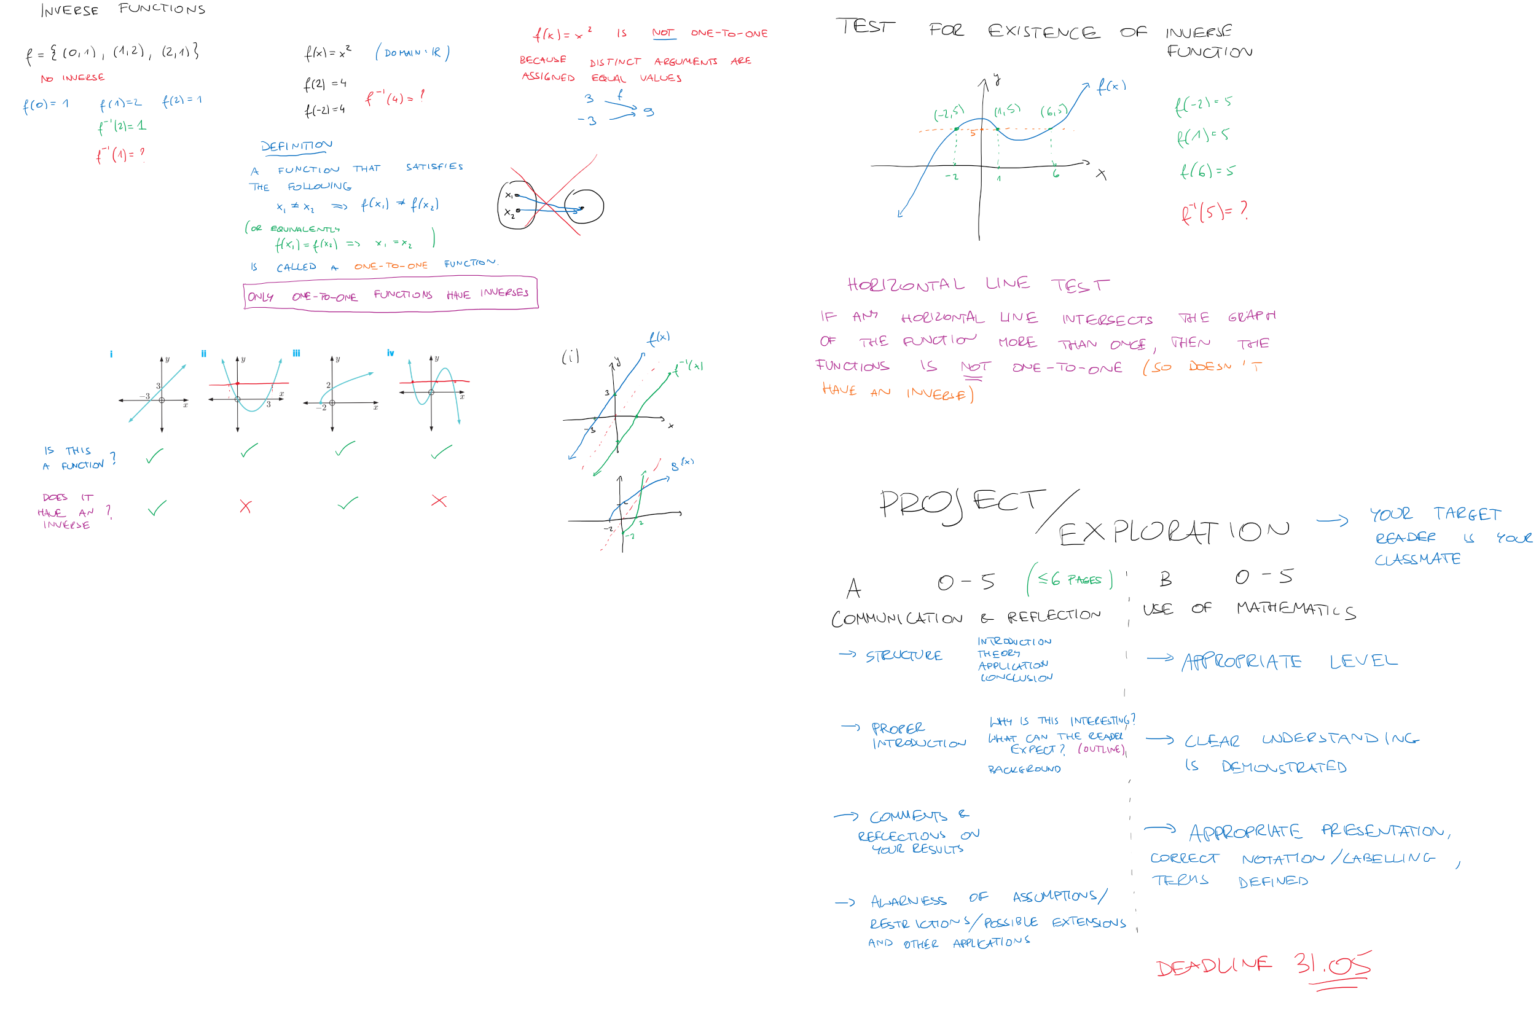 INVERSE FUNCTIONS
f = { (0,1) , (1,2) , (2,1) }
NO INVERSE
f(0)=1 f(1)=2 f(2)=1
f⁻¹(2)=1
f⁻¹(1)=?
f(x)=x² (DOMAIN: ℝ)
f(2)=4
f(-2)=4
f⁻¹(4)=?
f(x)=x² IS NOT ONE-TO-ONE
BECAUSE DISTINCT ARGUMENTS ARE
ASSIGNED EQUAL VALUES
3 f
-3 9
DEFINITION
A FUNCTION THAT SATISFIES
THE FOLLOWING
x₁ ≠ x₂ ⇒ f(x₁) ≠ f(x₂)
(OR EQUIVALENTLY
f(x₁)=f(x₂) ⇒ x₁=x₂ )
IS CALLED A ONE-TO-ONE FUNCTION.
ONLY ONE-TO-ONE FUNCTIONS HAVE INVERSES
x₁
x₂
i ii iii iv
y y y y
3 2
-3 x 3 x -2 x x
IS THIS
A FUNCTION?
✓ ✓ ✓ ✓
DOES IT
HAVE AN ?
INVERSE
✓ X ✓ X
(i) y f(x)
f⁻¹(x)
3
-3 x
g(x)
-2 2
-2
TEST FOR EXISTENCE OF INVERSE
FUNCTION
y f(x)
(-2,5) (1,5) (6,5)
5
-2 1 6 x
f(-2)=5
f(1)=5
f(6)=5
f⁻¹(5)=?
HORIZONTAL LINE TEST
IF ANY HORIZONTAL LINE INTERSECTS THE GRAPH
OF THE FUNCTION MORE THAN ONCE, THEN THE
FUNCTIONS IS NOT ONE-TO-ONE (SO DOESN'T
HAVE AN INVERSE)
PROJECT/
EXPLORATION → YOUR TARGET
READER IS YOUR
CLASSMATE
A 0-5 (≤6 PAGES)
COMMUNICATION & REFLECTION
→ STRUCTURE
INTRODUCTION
THEORY
APPLICATION
CONCLUSION
→ PROPER
INTRODUCTION
WHY IS THIS INTERESTING?
WHAT CAN THE READER
EXPECT? (OUTLINE)
BACKGROUND
→ COMMENTS &
REFLECTIONS ON
YOUR RESULTS
→ AWARNESS OF ASSUMPTIONS/
RESTRICTIONS/POSSIBLE EXTENSIONS
AND OTHER APPLICATIONS
B 0-5
USE OF MATHEMATICS
→ APPROPRIATE LEVEL
→ CLEAR UNDERSTANDING
IS DEMONSTRATED
→ APPROPRIATE PRESENTATION,
CORRECT NOTATION/LABELLING,
TERMS DEFINED
DEADLINE 31.05